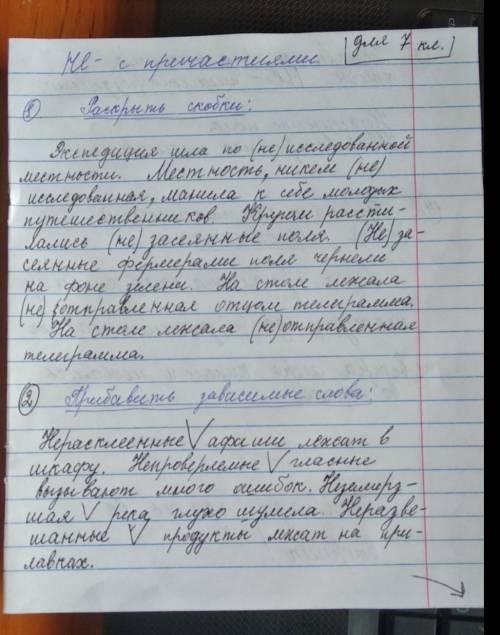 Не- с причастиями
для 7 кл.
① Раскрыть скобки:
Экспедиция шла по (не)исследованной
местности. Местность, никем (не)
исследованная, манила к себе молодых
путешественников. Кругом рассти-
лались (не)засеянные поля. (Не)за-
сеянные фермерами поля чернели
на фоне зелени. На столе лежала
(не)отправленная отцом телеграмма.
На столе лежала (не)отправленная
телеграмма.
② Прибавить зависимые слова:
Нерасклеенные V афиши лежат в
шкафу. Непроверяемые V гласные
вызывают много ошибок. Незамёрз-
шая V река глухо шумела. Неразве-
шанные V продукты лежат на при-
лавках.